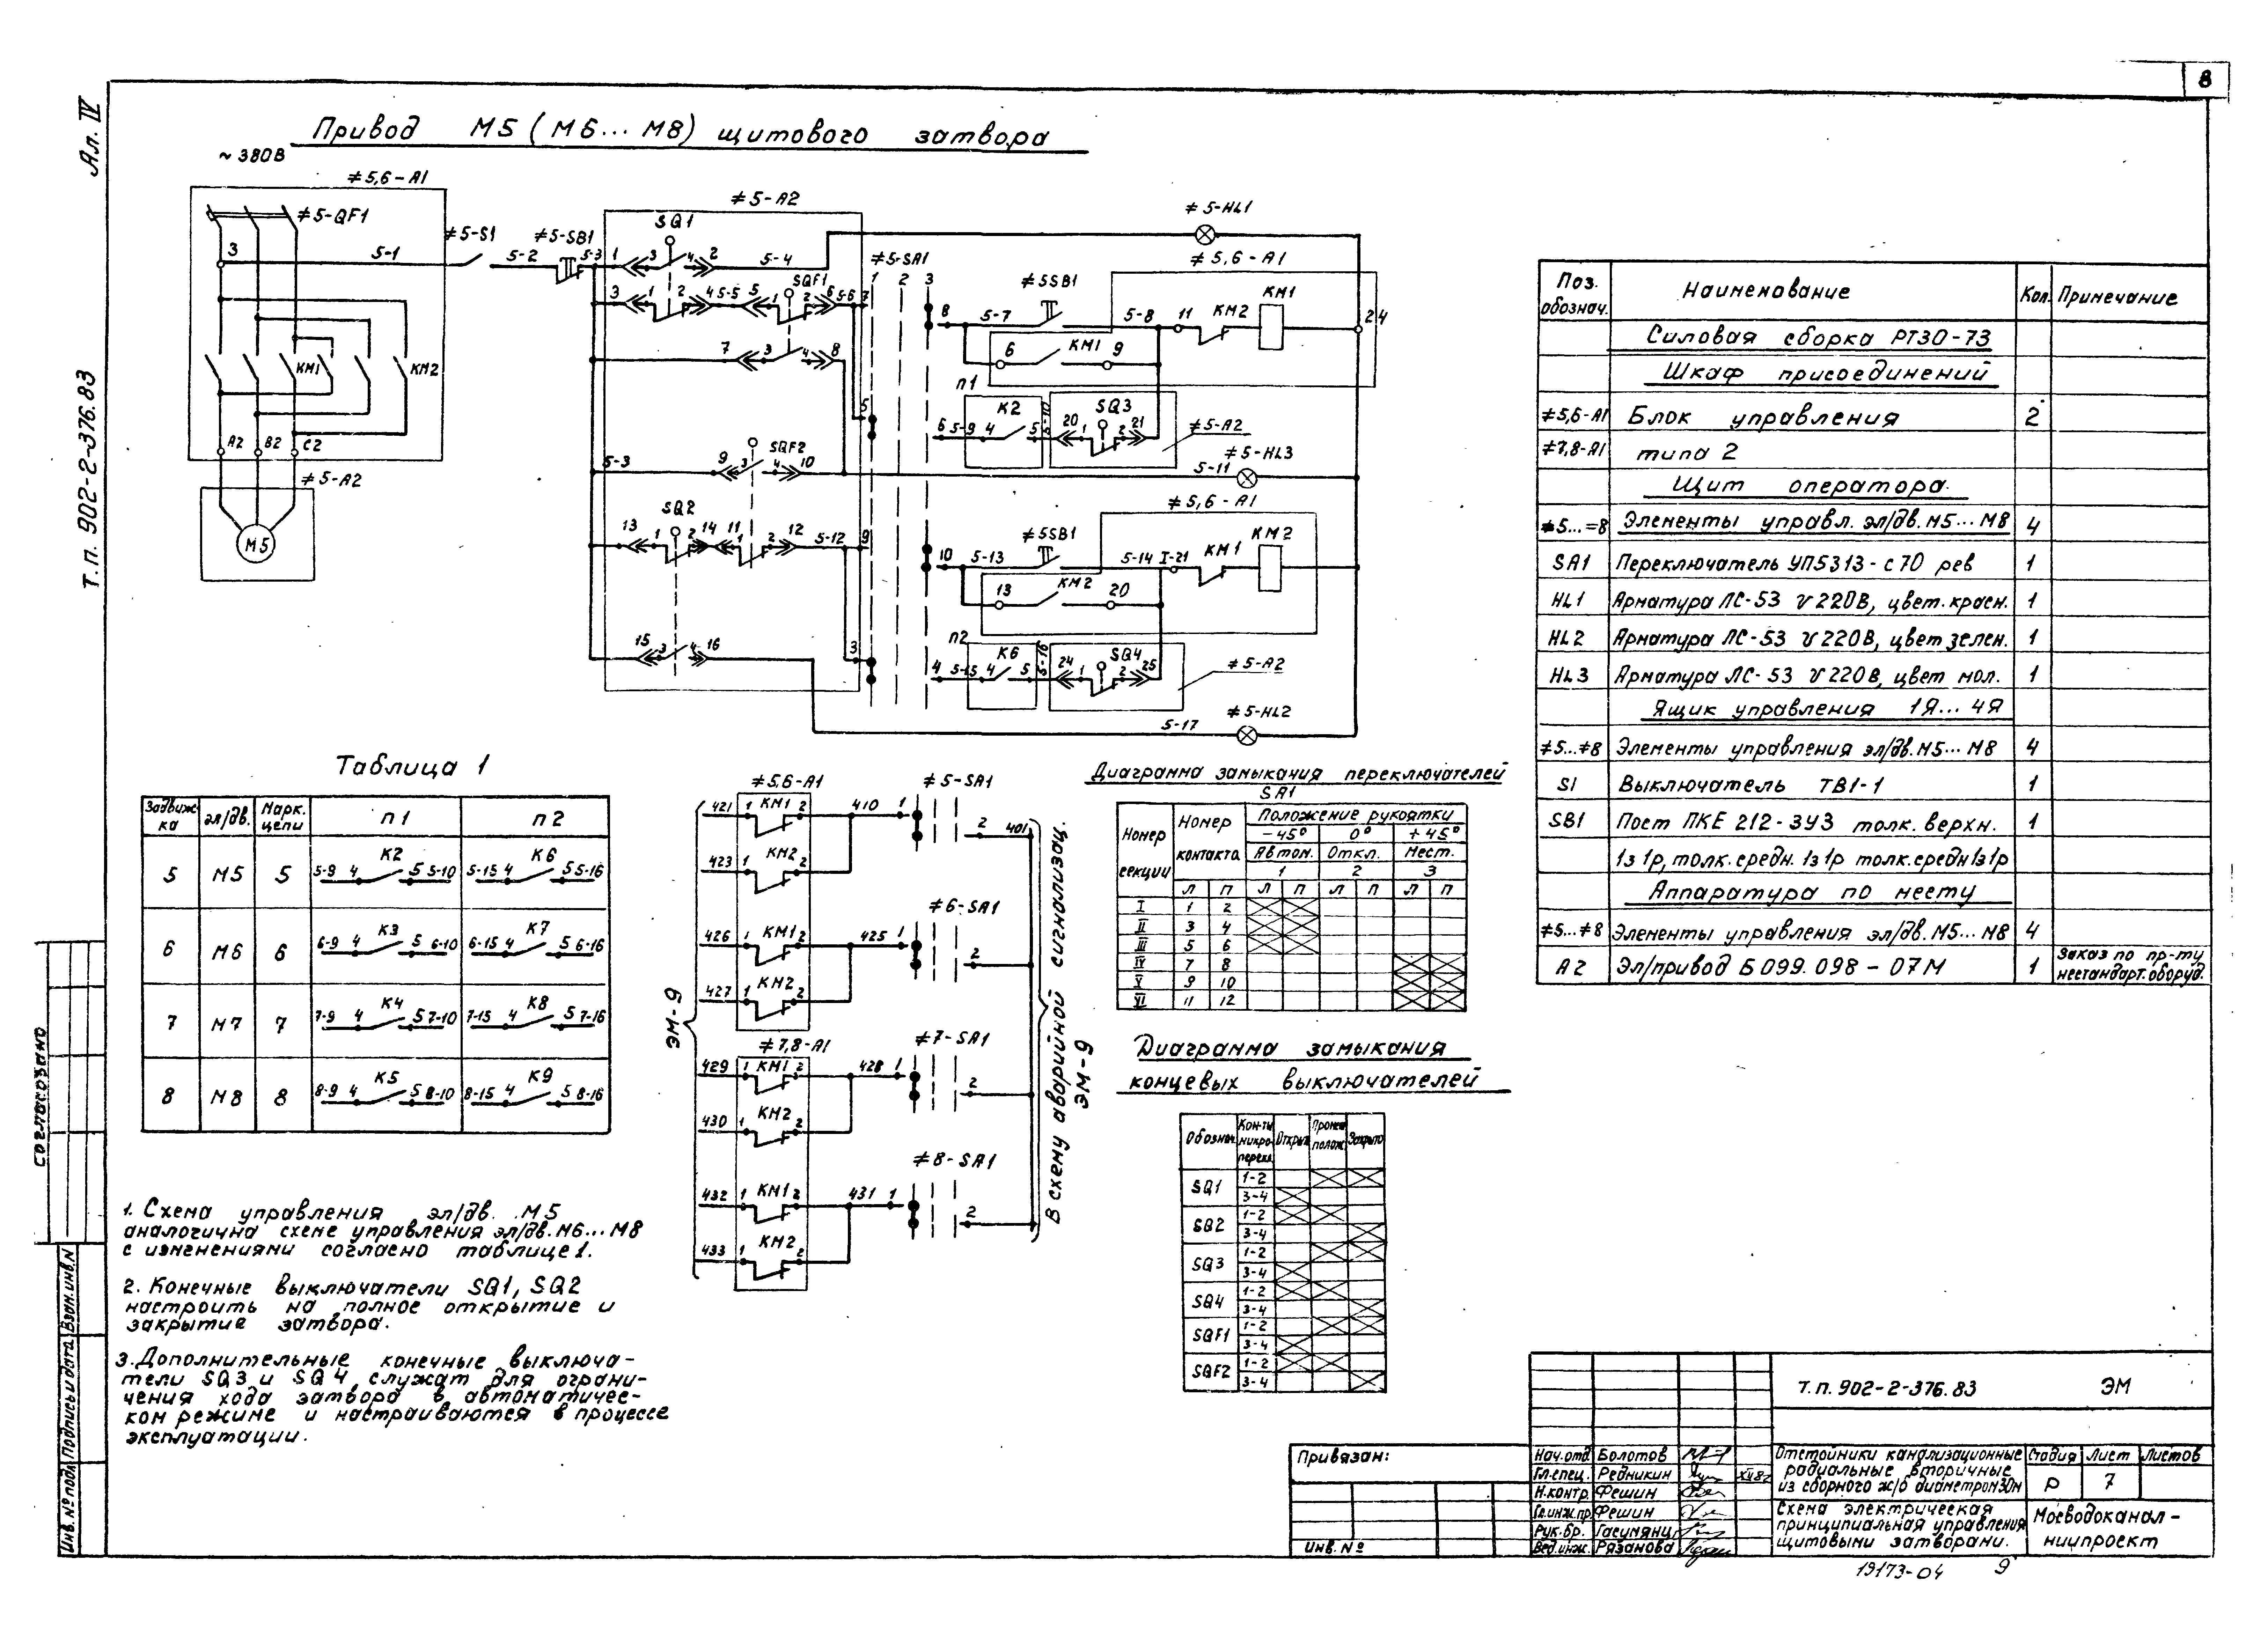 8
Ал. IV
Т.п. 902-2-376.83
Привод М5 (М6...М8) щитового затвора
~380В
≠5,6-А1
≠5-QF1
3
5-1
≠5-S1
5-2
≠5-SB1
5-3
≠5-А2
SQ1
1 3 4 2
5-4
≠5-HL1
3 1 2 4 5-5 5 1 2 6 5-6 7
SQF1
≠5-SA1
1 2 3
8
5-7
≠5SB1
5-8
≠5,6-А1
11
КМ2
КМ1
2 4
6
КМ1
9
7 3 4 8
КМ1
КМ2
А2 В2 С2
≠5-А2
М5
5
п1
6 5-9
К2
4 5
5-10
20 1
SQ3
2 21
≠5-А2
SQF2
5-3
9 3 4 10
5-11
≠5-HL3
SQ2
13 1 2 14 11 1 2 12
5-12
9
10
5-13
≠5SB1
5-14
I-21
≠5,6-А1
КМ1
КМ2
13
КМ2
20
15 3 4 16
3
п2
4 5-15
К6
4 5
5-16
24 1
SQ4
2 25
≠5-А2
5-17
≠5-HL2
Поз. обознач.
Наименование
Кол.
Примечание
Силовая сборка РТ30-73
Шкаф присоединений
≠5,6-А1 Блок управления 2
≠7,8-А1 типа 2
Щит оператора
≠5...=8 Элементы управл. эл/дв. М5...М8 4
SA1 Переключатель УП5313-с70 рев 1
HL1 Арматура ЛС-53 V220В, цвет. красн. 1
HL2 Арматура ЛС-53 V220В, цвет зелен. 1
HL3 Арматура ЛС-53 V220В, цвет мол. 1
Ящик управления 1Я...4Я
≠5...≠8 Элементы управления эл/дв. М5...М8 4
S1 Выключатель ТВ1-1 1
SB1 Пост ПКЕ 212-3У3 толк. верхн. 1
1з 1р, толк. средн. 1з 1р толк. средн 1з 1р
Аппаратура по месту
≠5...≠8 Элементы управления эл/дв. М5...М8 4
А2 Эл/привод Б099.098-07М 1 Заказ по пр-ту нестандарт. оборуд.
Таблица 1
Задвижка
эл/дв.
Марк. цепи
п1
п2
5 М5 5 5-9 4 К2 5 5-10 5-15 4 К6 5 5-16
6 М6 6 6-9 4 К3 5 6-10 6-15 4 К7 5 6-16
7 М7 7 7-9 4 К4 5 7-10 7-15 4 К8 5 7-16
8 М8 8 8-9 4 К5 5 8-10 8-15 4 К9 5 8-16
≠5,6-А1
≠5-SA1
421 1 КМ1 2 410 1
2 401
423 1 КМ2
≠6-SA1
426 1 КМ1 2 425 1
2
427 1 КМ2 2
≠7,8-А1
≠7-SA1
429 1 КМ1 2 428 1
2
430 1 КМ2 2
≠8-SA1
432 1 КМ1 2 431 1
2
433 1 КМ2 2
ЭМ-9
В схему аварийной сигнализац.
ЭМ-9
Диаграмма замыкания переключателей
SA1
Номер секции
Номер контакта
Положение рукоятки
-45° 0° +45°
Автом. Откл. Мест.
1 2 3
Л П Л П Л П Л П
I 1 2
II 3 4
III 5 6
IV 7 8
V 9 10
VI 11 12
Диаграмма замыкания
концевых выключателей
Обознач.
Кон-ты микроперекл.
Открыт
Промеж полож.
Закрыто
SQ1 1-2
3-4
SQ2 1-2
3-4
SQ3 1-2
3-4
SQ4 1-2
3-4
SQF1 1-2
3-4
SQF2 1-2
3-4
1. Схема управления эл/дв. М5
аналогична схеме управления эл/дв. М6...М8
с изменениями согласно таблице 1.
2. Конечные выключатели SQ1, SQ2
настроить на полное открытие и
закрытие затвора.
3. Дополнительные конечные выключа-
тели SQ3 и SQ4 служат для ограни-
чения хода затвора в автоматичес-
ком режиме и настраиваются в процессе
эксплуатации.
Согласовано
Инв. № подл.
Подпись и дата
Взам. инв. N
Привязан:
Инв. №
Т.п. 902-2-376.83 ЭМ
Нач. отд. Болотов
Гл. спец. Редникин
Н. контр. Фешин
Гл. инж. пр. Фешин
Рук. бр. Гасумянц
Вед. инж. Рязанова
Отстойники канализационные
радиальные вторичные
из сборного ж/б диаметром 30м
Стадия Лист Листов
Р 7
Схема электрическая
принципиальная управления
щитовыми затворами.
Мосводоканал-
ниипроект
19173-04 9